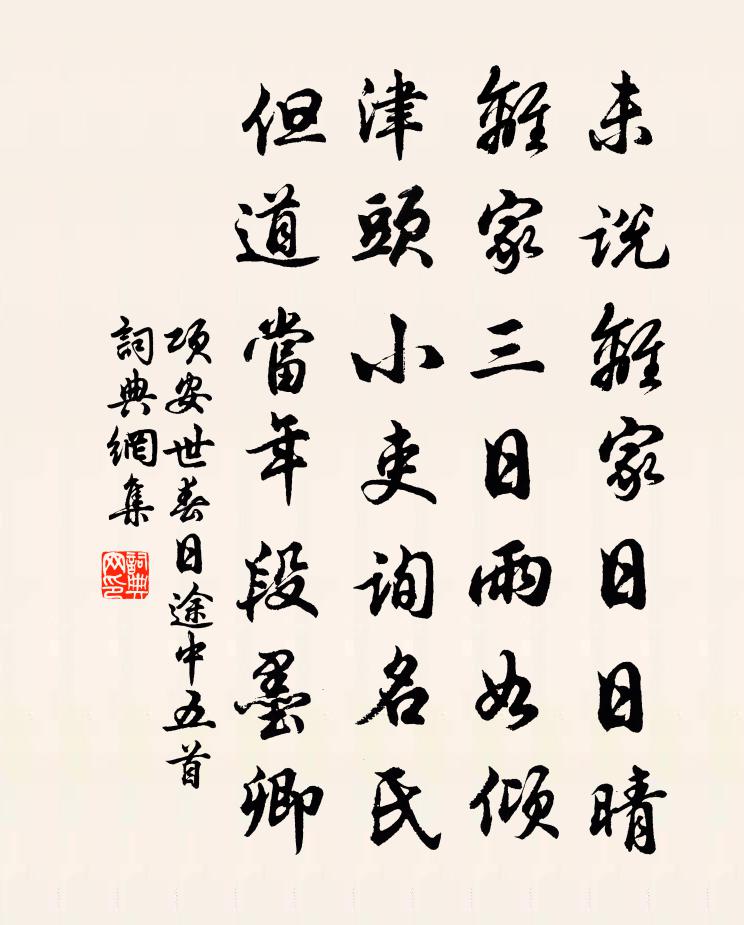 未説離家日日晴
離家三日雨如傾
津頭小吏詢名民
但道當年段墨卿
項安世春日途中五首
詞典網集
詞典網印